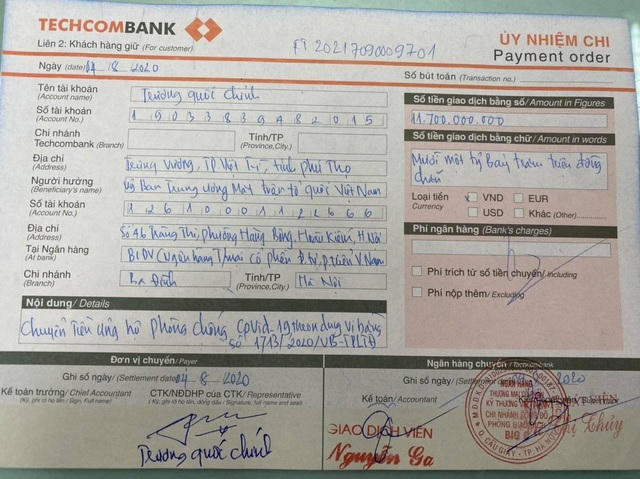 TECHCOMBANK
ỦY NHIỆM CHI
Liên 2: Khách hàng giữ (For customer)
FT 20217090009701
Payment order
Ngày (date) 04-8-2020
Số bút toán (Transaction no.)
Tên tài khoản Trương quốc chính
(Account name)
Số tiền giao dịch bằng số/Amount in Figures
Số tài khoản
(Account No.)
11.700.000.000
Chi nhánh Tỉnh/TP
Techcombank (Branch) (Province,City.)
Số tiền giao dịch bằng chữ/Amount in words
Địa chỉ Trưng Vương, TP Việt Trì, tỉnh phú Thọ
(Address)
Mười một tỷ Bảy trăm triệu đồng
chẵn
Người hưởng Uỷ Ban Trung ương Mặt trận tổ quốc Việt Nam
(Beneficiary's name)
Loại tiền x VND EUR
Currency USD Khác (Other)
Số tài khoản 1 2 6 1 0 0 0 1 1 2 2 6 6 6
(Account No.)
Địa chỉ Số 46 Tràng Thi, phường Hàng Bông, Hoàn Kiếm, H Nội
(Address)
Phí ngân hàng (Bank's charges)
Tại Ngân hàng BIDV
(At bank)
Phí trích từ số tiền chuyển/Including
Chi nhánh Ba Đình Tỉnh/TP Hà Nội
(Branch) (Province,City.)
Phí nộp thêm/Excluding
Nội dung/ Details
Chuyển Tiền ủng hộ phòng chống Covid-19 theo vi bằng
số 1713/2020/VB-TPLTĐ
Đơn vị chuyển/Payer
Ngân hàng chuyển/Techcombank
Ghi sổ ngày/ (Settlement date) 04-8-2020
Ghi sổ ngày/ 2020
Kế toán trưởng/ Chief Accountant CTK/NĐDHP của CTK/ Representative
(Ký, ghi rõ họ tên / Sign, Full name)
Kế toán/ Accountant
GIAO DỊCH VIÊN
Nguyễn Ga
Trương quốc chính
NGÂN HÀNG
THƯƠNG MẠI CỔ PHẦN
KỸ THƯƠNG VIỆT NAM
Q. CẦU GIẤY - TP. HÀ NỘI
Thủy